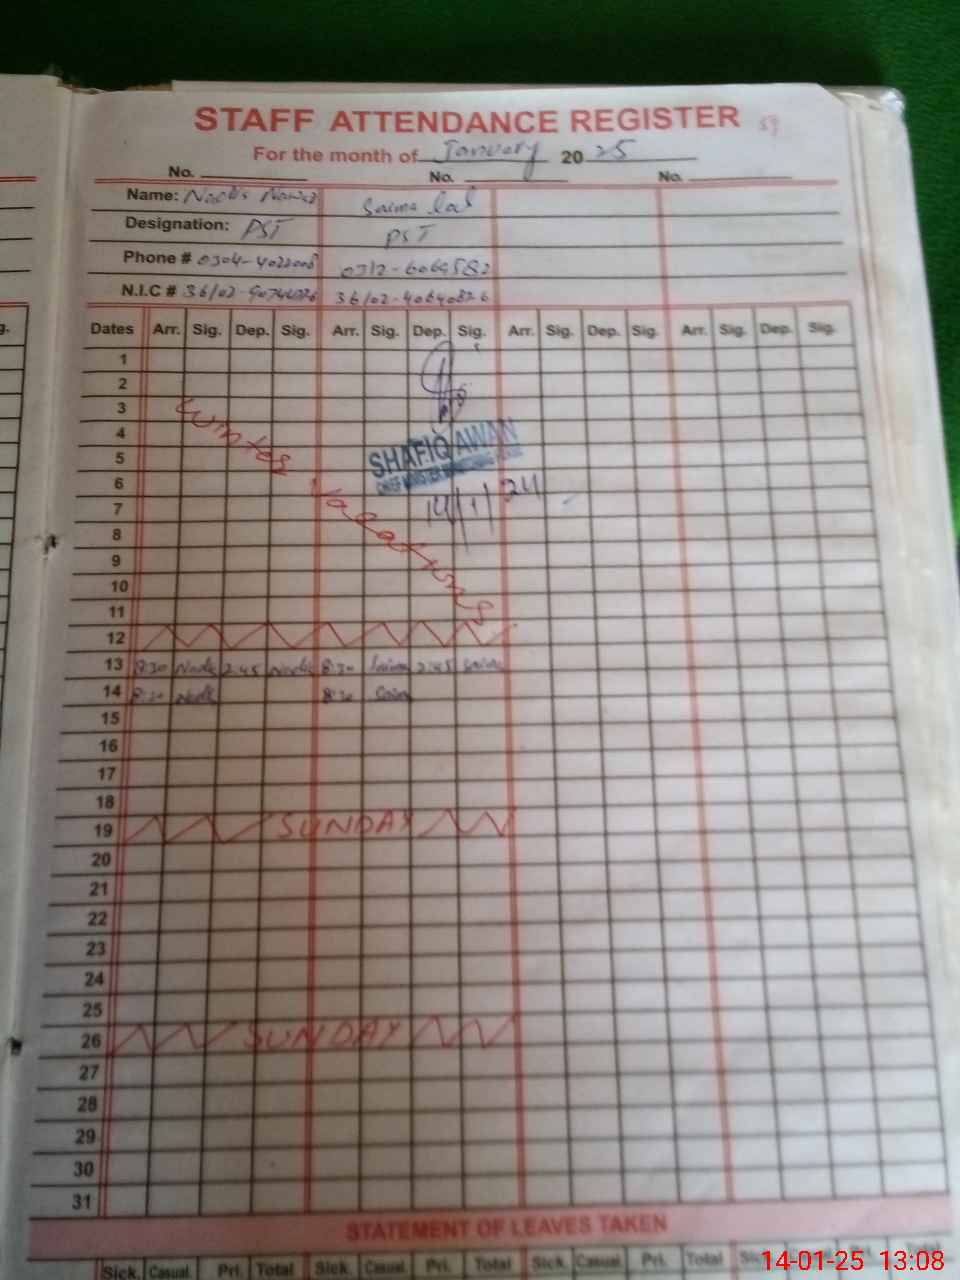 STAFF ATTENDANCE REGISTER 59
For the month of January 2025
No. No. No.
Name: Nawaz Saima
Designation: PST PST
Phone # 0312-6069582
N.I.C #
Dates Arr. Sig. Dep. Sig. Arr. Sig. Dep. Sig. Arr. Sig. Dep. Sig. Arr. Sig. Dep. Sig.
1
2
3
4
5
6
7
8
9
10
11
Winter Vacations
SHAFIQ AWAN
14/1/24
12
13 8:30 2:45 8:30 Saima 2:45 Saima
14 8:30 8:30 Saim
15
16
17
18
19 SUNDAY
20
21
22
23
24
25
26 SUNDAY
27
28
29
30
31
STATEMENT OF LEAVES TAKEN
Sick. Casual. Pri. Total Sick. Casual. Pri. Total Sick. Casual. Pri. Total Sick. Pri. Total
14-01-25 13:08